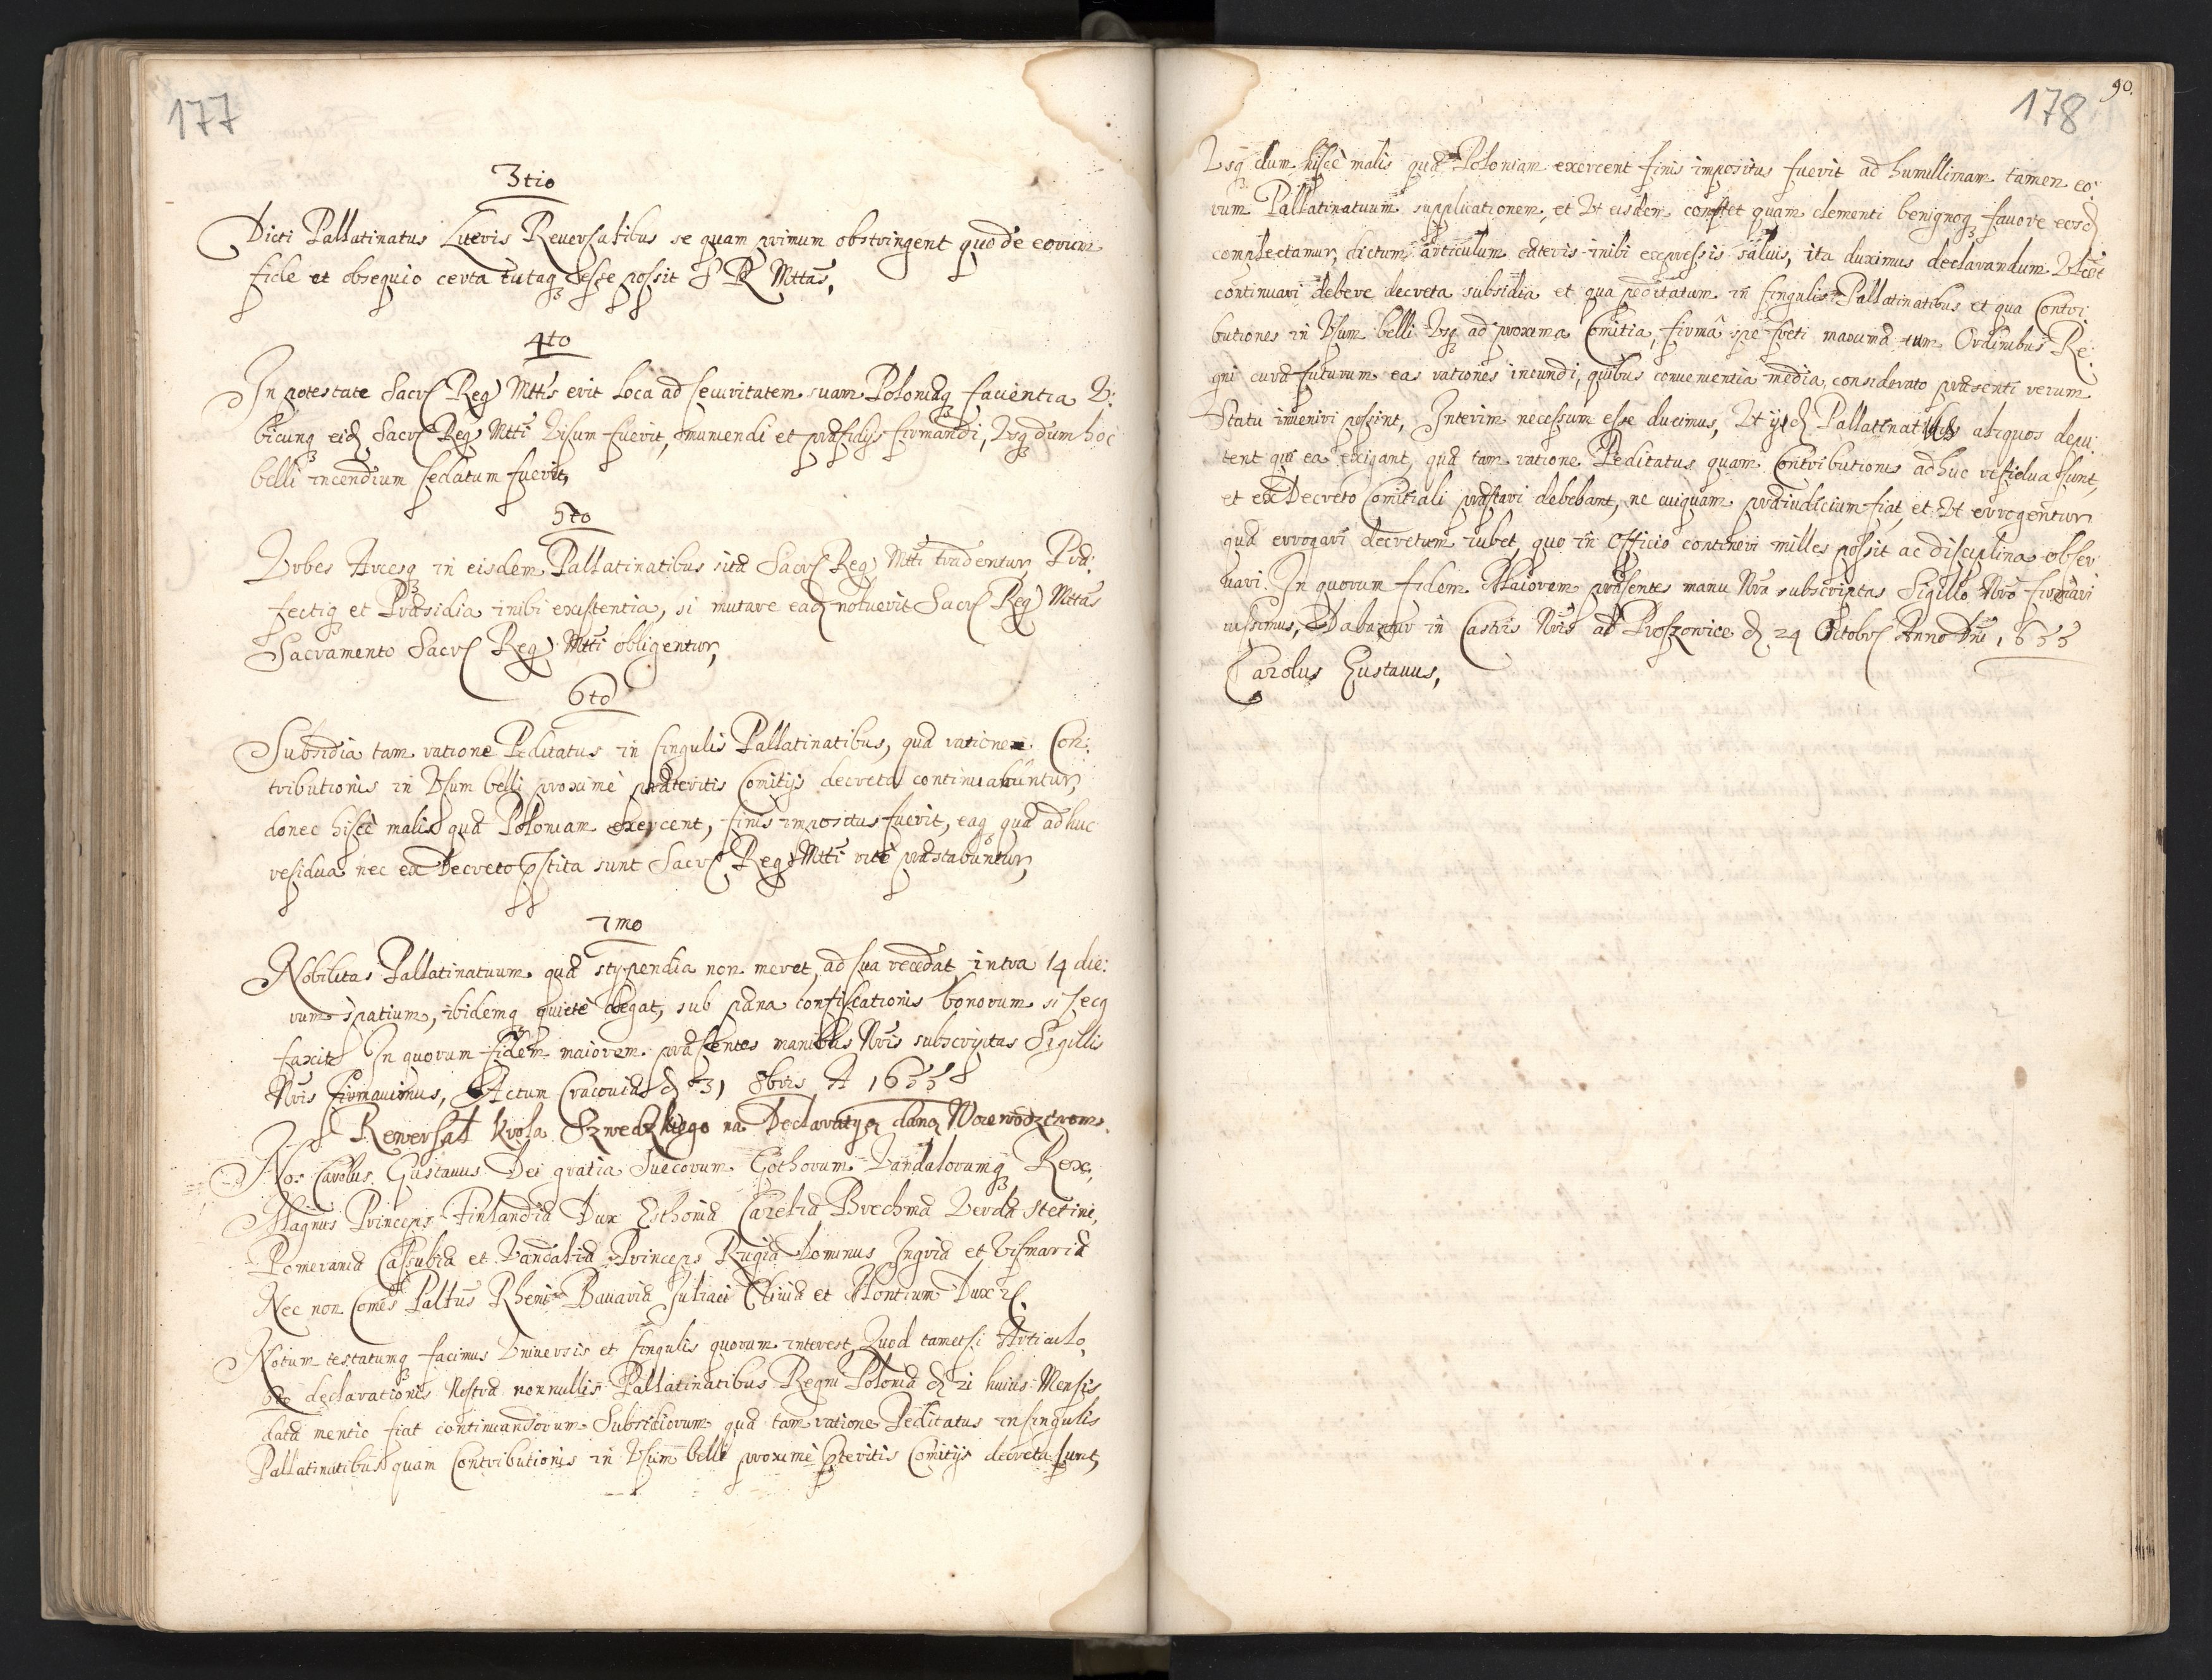 177
3tio
Dicti Pallatinatus Literis Reuersalibus se quam primum obstringent quo de eorum
fide et obsequio certa tutaq₃ esse possit S R Mttas,
4to
In potestate Sacræ Reg Mttis erit Loca ad securitatem suam Poloniæq₃ facientia V:
bicunq₃ eid Sacræ Reg Mtti Visum fuerit, muniendi et præsidijs firmandi, Vsq₃ dum hoc
belli incendium sedatum fuerit,
5to
Vrbes Arcesq₃ in eisdem Pallatinatibus sitæ Sacræ Reg Mtti tradentur, Præ:
fectiq₃ et Præsidia inibi existentia, si mutare ead noluerit Sacræ Reg Mttas
Sacramento Sacræ Reg Mtti obligentur,
6to
Subsidia tam ratione Peditatus in singulis Pallatinatibus, quæ ratione Con:
tributionis in Vsum belli proximè præteritis Comitijs decreta continuabuntur,
donec hiscè malis quæ Poloniam exercent, finis impositus fuerit, eaq₃ quæ adhuc
residua nec ex Decreto pstita sunt Sacræ Reg Mtti ritè præstabuntur,
7mo
Nobilitas Pallatinatuum quæ stypendia non meret, ad sua recedat intra 14 die:
rum spatium, ibidemq₃ quietè degat, sub pæna confiscationis bonorum si secq
faxit In quorum fidem maiorem præsentes manibus Nris subscriptas Sigillis
Nris firmauimus, Actum Cracouiæ d 31 8bris A 1655
Rewersał krola Szwedzkiego na Declaratyą daną Woiewodztwom.
Nos Carolus Gustauus Dei gratia Suecorum Gothorum Vandalorumq₃ Rex,
Magnus Princeps Finlandiæ Dux Esthoniæ Careliæ Brechmæ Verdæ Stetini,
Pomeraniæ Cassubiæ et Vandaliæ, Princeps Rugiæ Dominus Ingriæ et Vismariæ
Nec non Comes Paltus Rheni Bauariæ Juliaci Cliuiæ et Montium Dux
Notum testatumq₃ facimus Vniuersis et singulis quorum interest, Quod tametsi Articulo
6to declarationis Nostræ nonnullis Pallatinatibus Regni Poloniæ d 21 huius Mensis
datæ mentio fiat continuandorum Subsidiorum quæ tam ratione Peditatus in singulis
Pallatinatibus quam Contributionis in Vsum belli proximè pteritis Comitijs decreta sunt,
90.
178
Vsq₃ dum hiscè malis quæ Poloniam exercent finis impositus fuerit ad humillimam tamen eo:
rum Pallatinatuum supplicationem, et Vt eisdem constet quam clementi benignoq₃ fauore eosd
complectamur, dictum articulum cæteris inibi expressis saluis, ita duximus declarandum
continuari debere decreta subsidia et qua peditatum in singulis Pallatinatibus et qua Contri:
butiones in Vsum belli Vsq₃ ad proxima Comitia, firmâ spe freti maxumæ cum Ordinibus Re:
gni curæ futurum eas rationes ineundi, quibus conuenientia media, considerato præsenti rerum
Statu inueniri possint, Interim necessum esse ducimus, Vt ijd Pallatinatus aliquos depu:
tent qui ea exigant, quæ tam ratione Peditatus quam Contributionis adhuc residua sunt,
et ex Decreto Comitiali præstari debebant, ne cuiquam præiudicium fiat, et Vt errogentur
quæ errogari decretum iubet, quo in Officio contineri milles possit ac disciplina obser
uari. In quorum fidem Maiorem præsentes manu Nra subscriptas Sigillo Nro firmari
iussimus, Dabantur in Castris Nris ad Proszowice d. 24 Octobr Anno Dni 1655
Carolus Gustauus,